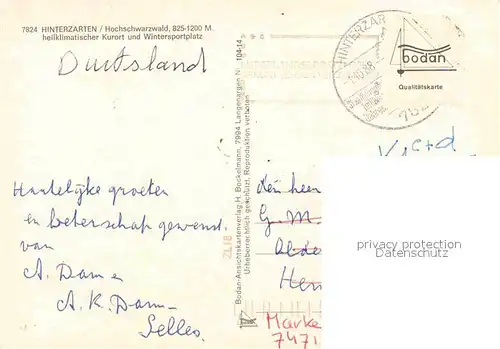 7824 HINTERZARTEN / Hochschwarzwald, 825-1200 M.
heilklimatischer Kurort und Wintersportplatz
Duitsland
Hartelijke groeten
en beterschap gewenst
van
A. Dam
A. K. Dam
Selles.
Bodan-Ansichtskartenverlag H. Bockelmann, 7994 Langenargen Nr. 104-14
Urheberrechtlich geschützt. Reproduktion verboten
HINTERZAR
bodan
Qualitätskarte
den heer
G. M.
privacy protection
Datenschutz
Marke
7471